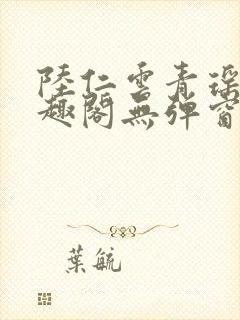 陸仁雲青瑶
趣閣無彈窗
葉毓